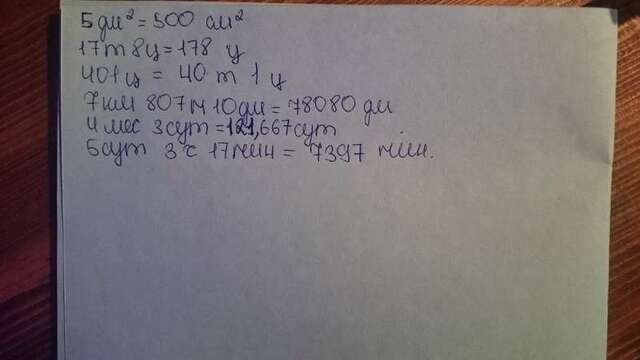 5 дм² = 500 см²
17т 8ц = 178 ц
401ц = 40 т 1 ц
7км 807м 10дм = 78080 дм
4 мес 3сут = 121,667сут
5сут 3ч 17мин = 7397 мин.